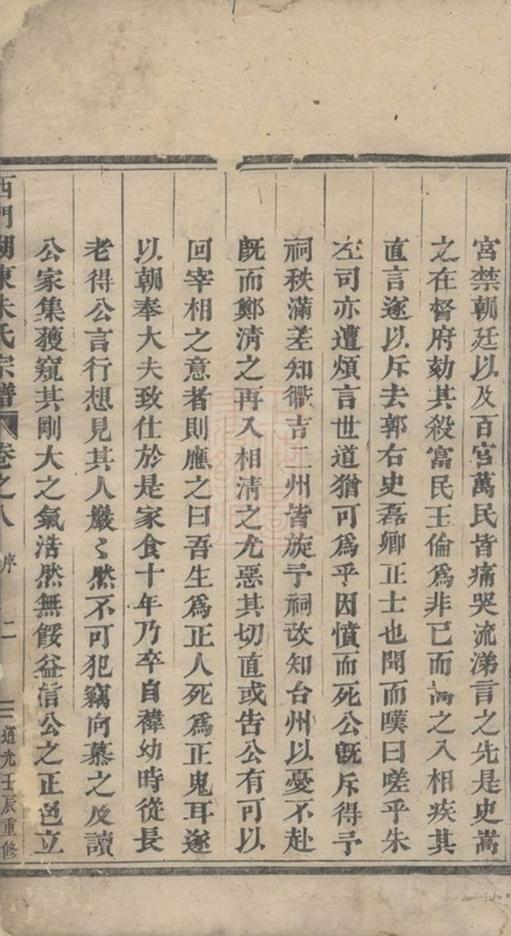 宮禁朝廷以及百官萬民皆痛哭流涕言之先是史嵩
之在督府劾其殺富民王倫為非已而嵩之入相疾其
直言遂以斥去郭右史磊卿正士也聞而嘆曰嗟乎朱
左司亦遭煩言世道猶可為乎因憤而死公旣斥得予
祠秩滿差知徽吉二州皆旋予祠改知台州以憂不赴
旣而鄭清之再入相清之尤惡其切直或告公有可以
回宰相之意者則應之曰吾生為正人死為正鬼耳遂
以朝奉大夫致仕於是家食十年乃卒自稱幼時從長
老得公言行想見其人巖〻然不可犯竊向慕之及讀
公家集獲窺其剛大之氣浩然無餒益信公之正色立
西門湖東朱氏宗譜 卷之八 序 二 道光壬辰重修